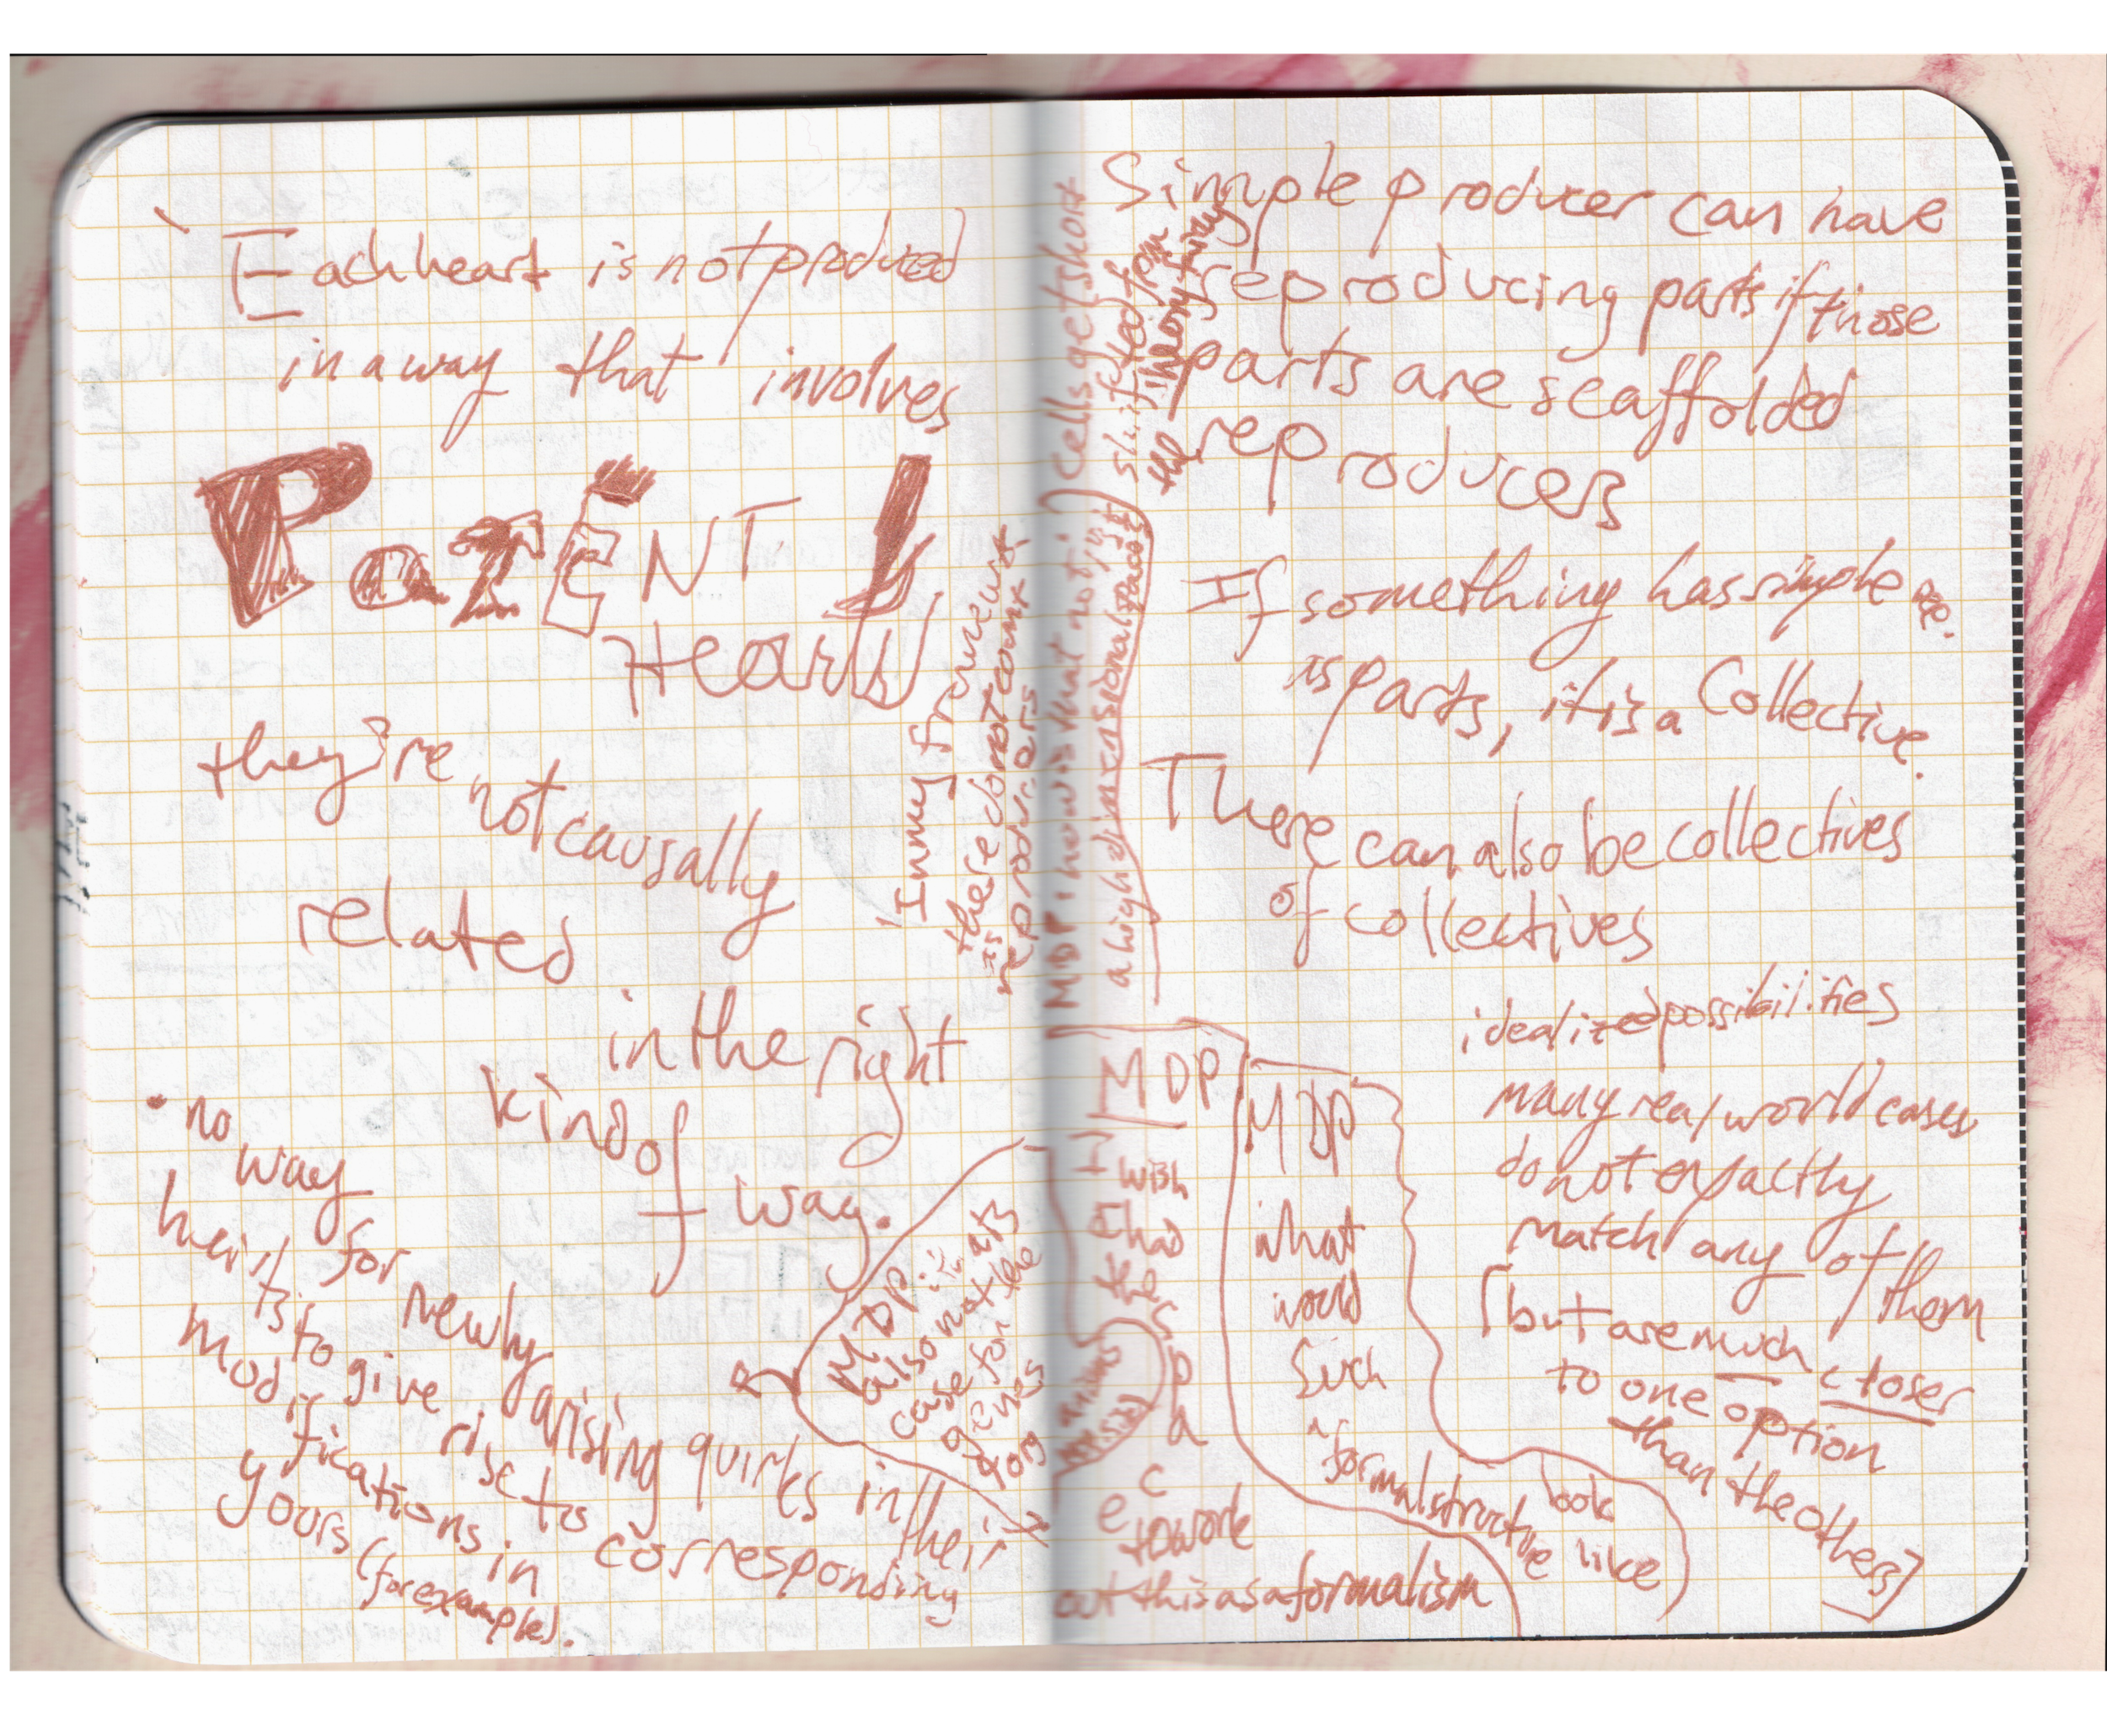 Each heart is not produced
in a way that involves
PaRENT
Hearts
they're
not causally
related
in the right
kind of
way.
• no
way
for
newly
arising quirks in their
hearts
to give
rise to
corresponding
modifications in
yours (for example).
"In my framework,
these do not count
as
reproducers
MDP:
also not the
case for the
genes
MDP: how is that not just
a high dimensional space?
Cells get short
shrifted from
the theory
Simple producer can have
reproducing parts if those
parts are scaffolded
reproducers
If something has simple rep.
as parts, it is a Collective.
There can also be collectives
of collectives
idealized possibilities
many real world cases
do not exactly
match any of them
[but are much closer
to one option
than the others]
MDP
wish
I had
the
space
to work
out this as a formalism
MDP
what
would
such
a
formal structure
look
like